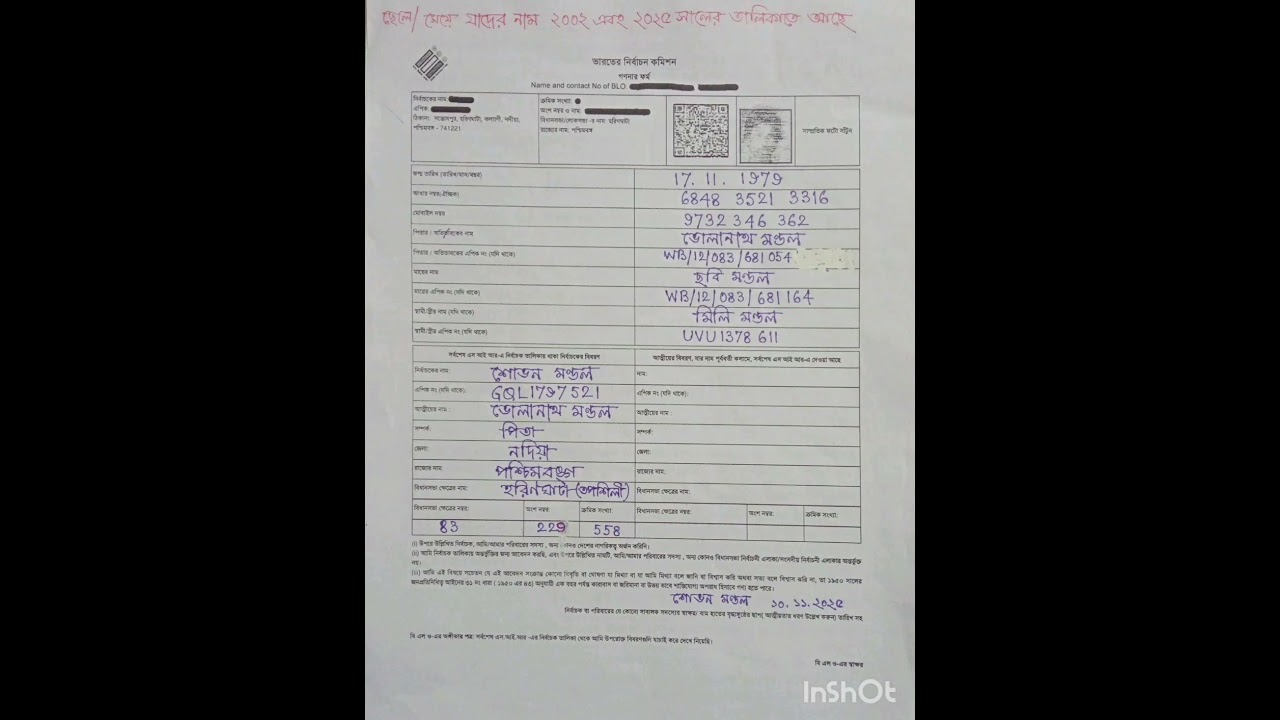 ছেলে/ মেয়ে যাদের নাম ২০০২ এবং ২০২৫ সালের তালিকাতে আছে
ভারতের নির্বাচন কমিশন
গণনার ফর্ম
Name and contact No of BLO
নির্বাচকের নাম:
এপিক:
ঠিকানা: সন্তোষপুর, হরিণঘাটা, কল্যাণী, নদীয়া,
পশ্চিমবঙ্গ - 741221
ক্রমিক সংখ্যা:
অংশ নম্বর ও নাম:
বিধানসভা/লোকসভা -র নাম: হরিণঘাটা
রাজ্যের নাম: পশ্চিমবঙ্গ
সাম্প্রতিক ফটো সাঁটুন
জন্ম তারিখ (তারিখ/মাস/বছর) 17. 11. 1979
আধার নম্বর(ঐচ্ছিক) 6848 3521 3316
মোবাইল নম্বর 9732 346 362
পিতার / অভিভাবকের নাম ভোলানাথ মণ্ডল
পিতার / অভিভাবকের এপিক নং (যদি থাকে) WB/12/083/681054
মায়ের নাম ছবি মণ্ডল
মায়ের এপিক নং (যদি থাকে) WB/12/083/681164
স্বামী/স্ত্রীর নাম (যদি থাকে) মিলি মণ্ডল
স্বামী/স্ত্রীর এপিক নং (যদি থাকে) UVU1378611
সর্বশেষ এস আই আর-এ নির্বাচক তালিকায় থাকা নির্বাচকের বিবরণ
আত্মীয়ের বিবরণ, যার নাম পূর্ববর্তী কলামে, সর্বশেষ এস আই আর-এ দেওয়া আছে
নির্বাচকের নাম: শোভন মণ্ডল নাম:
এপিক নং (যদি থাকে): GQL1797521 এপিক নং (যদি থাকে):
আত্মীয়ের নাম : ভোলানাথ মণ্ডল আত্মীয়ের নাম :
সম্পর্ক: পিতা সম্পর্ক:
জেলা: নদিয়া জেলা:
রাজ্যের নাম: পশ্চিমবঙ্গ রাজ্যের নাম:
বিধানসভা ক্ষেত্রের নাম: হরিণঘাটা (তপশিলী) বিধানসভা ক্ষেত্রের নাম:
বিধানসভা ক্ষেত্রের নম্বর: অংশ নম্বর: ক্রমিক সংখ্যা: বিধানসভা ক্ষেত্রের নম্বর: অংশ নম্বর: ক্রমিক সংখ্যা:
83 229 558
(i) উপরে উল্লিখিত নির্বাচক, আমি/আমার পরিবারের সদস্য , অন্য কোনও দেশের নাগরিকত্ব অর্জন করিনি।
(ii) আমি নির্বাচক তালিকায় অন্তর্ভুক্তির জন্য আবেদন করছি, এবং উপরে উল্লিখিত নামটি, আমি/আমার পরিবারের সদস্য , অন্য কোনও বিধানসভা নির্বাচনী এলাকা/সংসদীয় নির্বাচনী এলাকায় অন্তর্ভুক্ত
নয়।
(iii) আমি এই বিষয়ে সচেতন যে এই আবেদন সংক্রান্ত কোনো বিবৃতি বা ঘোষণা যা মিথ্যা বা যা আমি মিথ্যা বলে জানি বা বিশ্বাস করি অথবা সত্য বলে বিশ্বাস করি না, তা ১৯৫০ সালের
জনপ্রতিনিধিত্ব আইনের ৩১ নং ধারা ( ১৯৫০ এর 43) অনুযায়ী এক বছর পর্যন্ত কারাবাস বা জরিমানা বা উভয় ভাবে শাস্তিযোগ্য অপরাধ হিসাবে গণ্য হতে পারে।
শোভন মণ্ডল ১০.১১.২০২৫
নির্বাচক বা পরিবারের যে কোনো সাবালক সদস্যের স্বাক্ষর/ বাম হাতের বৃদ্ধাঙ্গুষ্ঠের ছাপ( আত্মীয়তার ধরণ উল্লেখ করুন) তারিখ সহ
বি এল ও-এর অঙ্গীকার পত্র: সর্বশেষ এস.আই.আর -এর নির্বাচক তালিকা থেকে আমি উপরোক্ত বিবরণগুলি যাচাই করে দেখে নিয়েছি।
বি এল ও-এর স্বাক্ষর
InShOt